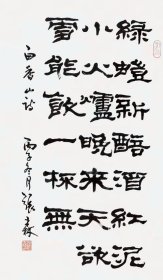 綠螘新醅酒紅泥
小火爐晚來天欲
雪能飲一杯無
白香山詩
丙子冬月張森